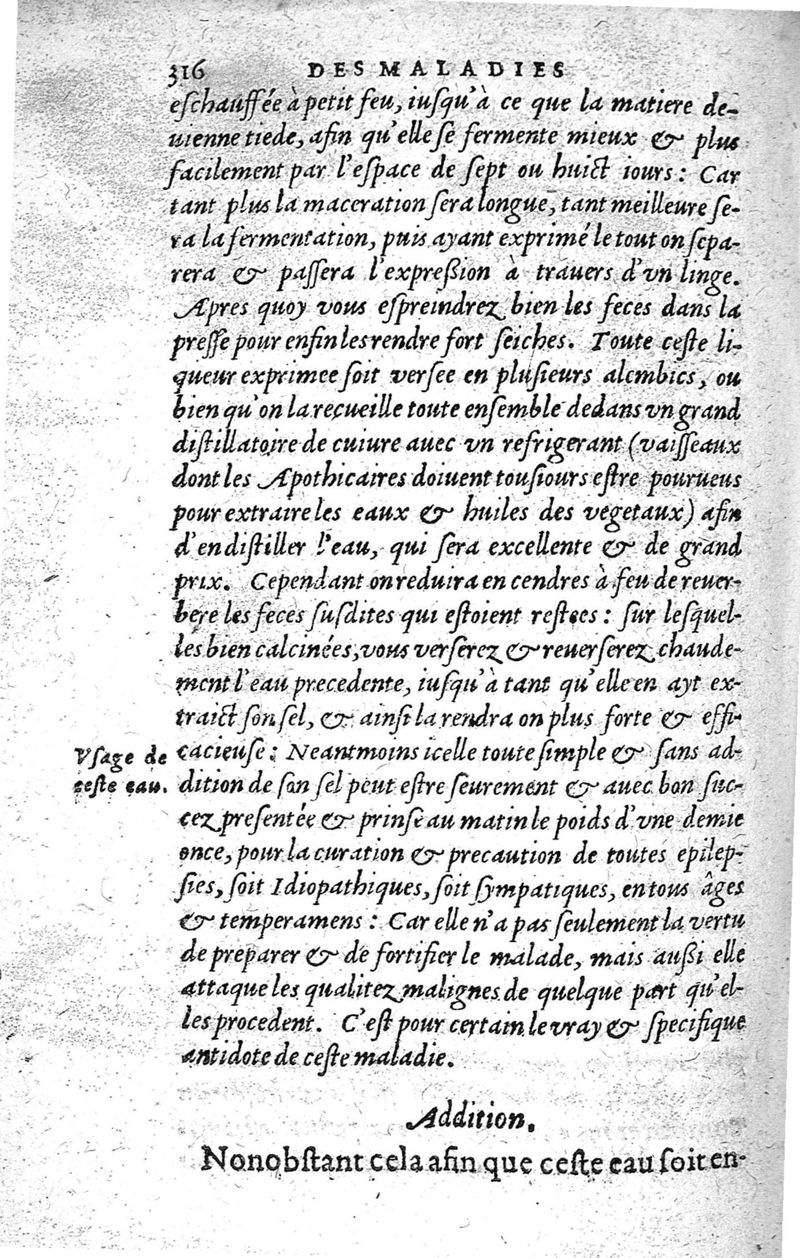 316 DES MALADIES
eſchauffée à petit feu, iuſqu'à ce que la matiere de-
uienne tiede, afin qu'elle ſe fermente mieux & plus
facilement par l'eſpace de sept ou huict iours: Car
tant plus la maceration ſera longue, tant meilleure ſe-
ra la fermentation, puis ayant exprimé le tout on ſepa-
rera & paſſera l'expreßion à trauers d'vn linge.
Apres quoy vous eſpreindrez bien les feces dans la
preſſe pour enfin les rendre fort ſeiches. Toute ceſte li-
queur exprimee ſoit versee en pluſieurs alembics, ou
bien qu'on la recueille toute enſemble dedans vn grand
diſtillatoire de cuiure avec vn refrigerant (vaiſſeaux
dont les Apothicaires doiuent touſiours eſtre pourueus
pour extraire les eaux & huiles des vegetaux) afin
d'en diſtiller l'eau, qui ſera excellente & de grand
prix. Cependant on reduira en cendres à feu de reuer-
bere les feces ſuſdites qui eſtoient reſtees: ſur leſquel-
les bien calcinées, vous verſerez & reuerſerez chaude-
ment l'eau precedente, iuſqu'à tant qu'elle en ayt ex-
traict ſon ſel, & ainſi la rendra on plus forte & effi-
Vſage de ceſte eau.
cacieuſe: Neantmoins icelle toute ſimple & ſans ad-
dition de ſon ſel peut eſtre ſeurement & auec bon ſuc-
cez preſentée & prinſe au matin le poids d'vne demie
once, pour la curation & precaution de toutes epilep-
ſies, ſoit Idiopathiques, ſoit ſympatiques, en tous âges
& temperamens: Car elle n'a pas ſeulement la vertu
de preparer & de fortifier le malade, mais außi elle
attaque les qualitez malignes de quelque part qu'el-
les procedent. C'eſt pour certain le vray & ſpecifique
antidote de ceſte maladie.
Addition.
Nonobſtant cela afin que ceſte eau ſoit en-